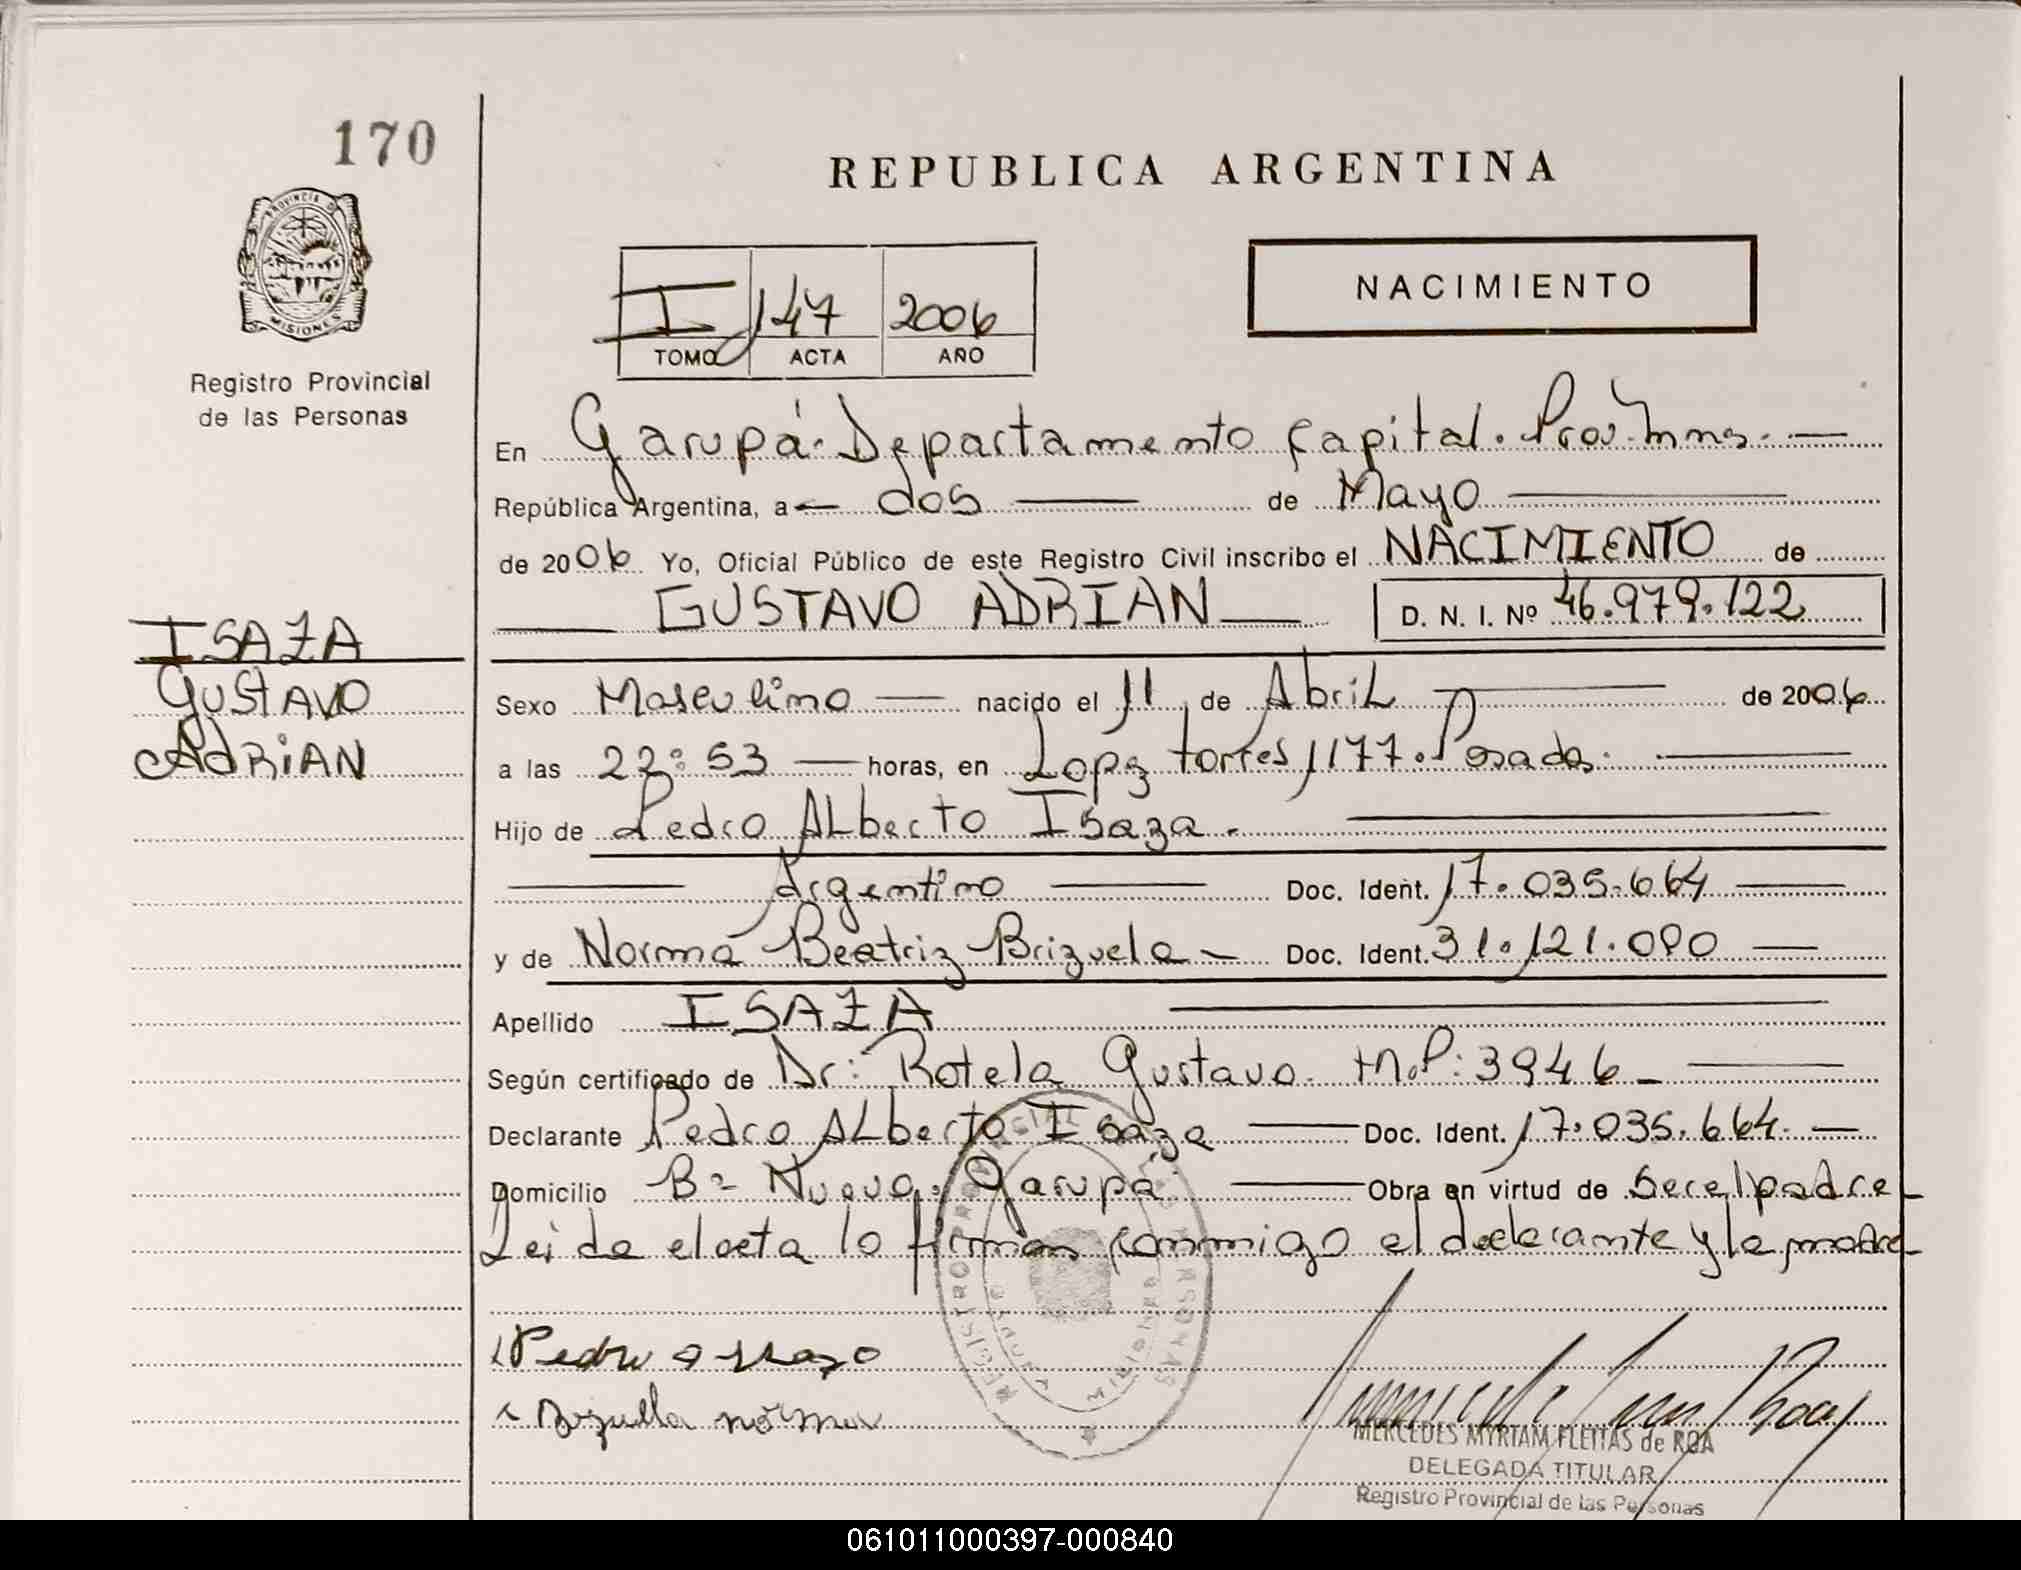 170
REPUBLICA ARGENTINA
PROVINCIA D
MISIONES
Registro Provincial
de las Personas
I 147 2006
TOMO ACTA AÑO
NACIMIENTO
En Garupá. Departamento Capital. Prov. Mnes.
República Argentina, a dos de Mayo
de 2006 Yo, Oficial Público de este Registro Civil inscribo el NACIMIENTO de
GUSTAVO ADRIAN D. N. I. Nº 46.979.122
ISAZA
GUSTAVO
ADRIAN
Sexo Masculino nacido el 11 de Abril de 2006
a las 22:53 horas, en Lopez torres 1177. Posadas.
Hijo de Pedro Alberto Isaza.
Argentino Doc. Ident. 17.035.664
y de Norma Beatriz Brizuela Doc. Ident. 31.121.090
Apellido ISAZA
Según certificado de Dr: Rotela Gustavo M.P: 3946
Declarante Pedro Alberto Isaza Doc. Ident. 17.035.664.
Domicilio Bº Nuevo. Garupá Obra en virtud de Ser el padre
Leida el acta la firman conmigo el declarante y la madre
REGISTRO PROVINCIAL PERSONAS
MISIONES
Pedro a Isaza
Norma
MERCEDES MYRIAM FLEITAS de ROA
DELEGADA TITULAR
Registro Provincial de las Personas
061011000397-000840